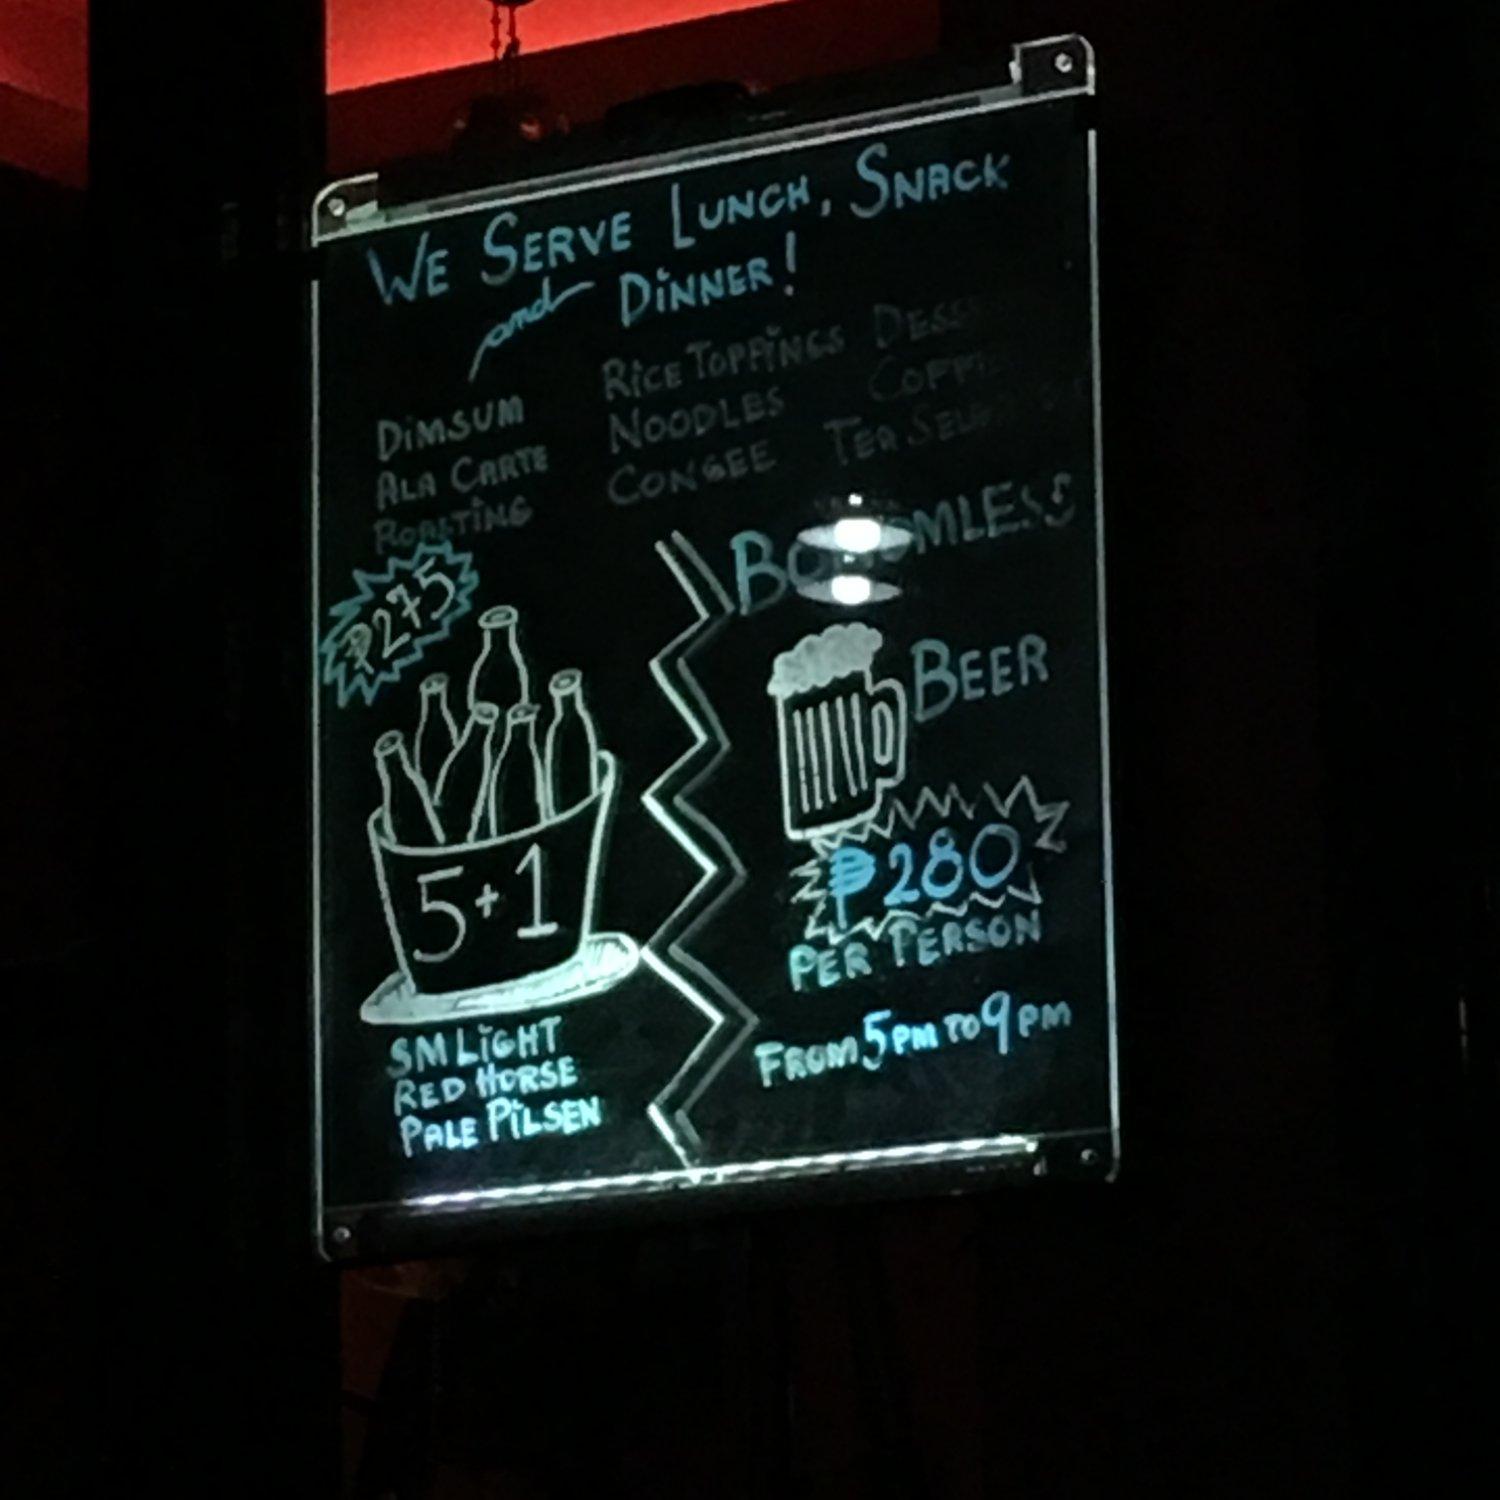 WE SERVE LUNCH, SNACK
and DINNER!
DIMSUM
ALA CARTE
ROASTING
RICE TOPPINGS
NOODLES
CONGEE
TEA
₱275
5+1
SM LIGHT
RED HORSE
PALE PILSEN
BOTTOMLESS
BEER
₱280
PER PERSON
FROM 5PM TO 9PM